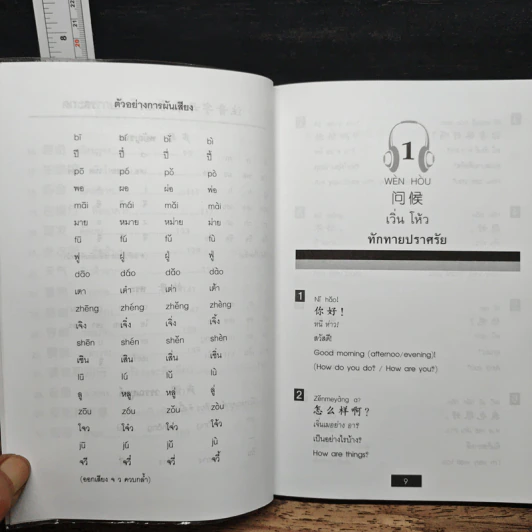 ตัวอย่างการผันเสียง
bī bí bǐ bì
ปี ปี๋ ปี่ ปี้
pō pó pǒ pò
พอ ผอ ผ่อ พ่อ
māi mái mǎi mài
มาย หมาย หม่าย ม่าย
fū fú fǔ fù
ฟู ฝู ฝู่ ฟู่
dāo dáo dǎo dào
เตา เต๋า เต่า เต้า
zhēng zhéng zhěng zhèng
shēn shén shěn shèn
เชิน เสิน เสิ่น เชิ่น
lū lú lǔ lù
ลู หลู หลู่ ลู่
zōu zóu zǒu zòu
โจว โจ๋ว โจ่ว โจ้ว
jū jú jǔ jù
จวี จวี๋ จวี่ จวี้
(ออกเสียง จ ว ควบกล้ำ)
1
WÈN HÒU
问候
เวิ่น โห้ว
ทักทายปราศรัย
1
Nǐ hǎo!
你好！
หนี ห่าว!
สวัสดี!
Good morning (afternoo/evening)!
(How do you do? / How are you?)
2
Zěnmeyàng a?
怎么样啊？
เจิ่นเมอย่าง อา?
เป็นอย่างไรบ้าง?
How are things?
9
8